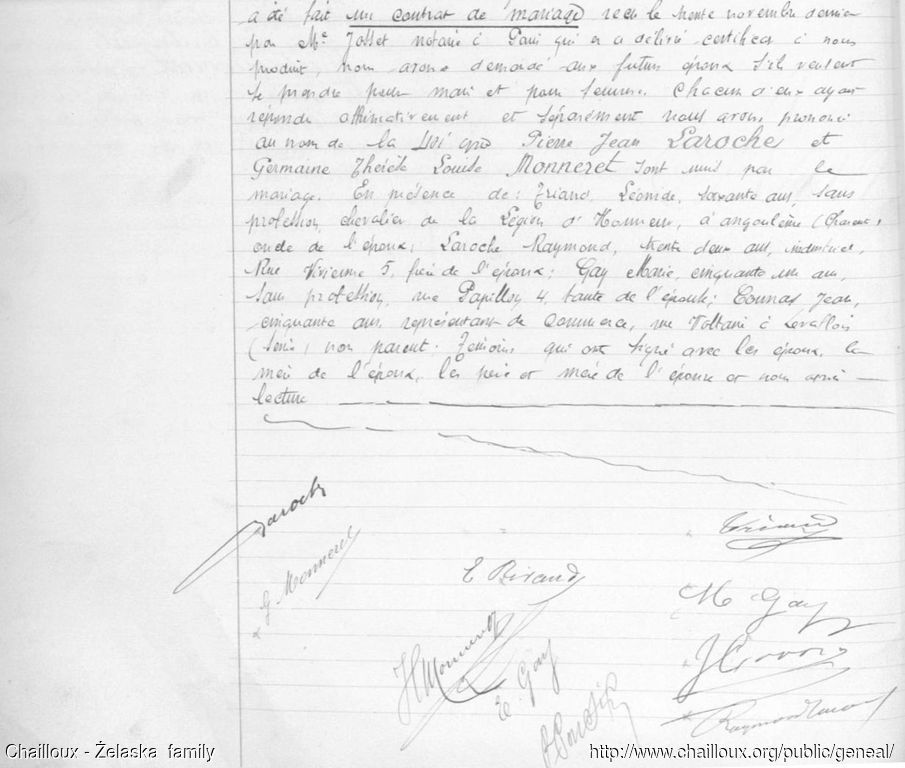 a été fait un contrat de mariage recu le trente novembre dernier
par Me Josset notaire à Paris qui en a délivré certificat à nous
produit, nous avons demandé aux futurs époux s'ils veulent
se prendre pour mari et pour femme. Chacun d'eux ayant
répondu affirmativement et séparément nous avons prononcé
au nom de la loi que Pierre Jean Laroche et
Germaine Thérèse Louise Monneret sont unis par le
mariage. En présence de: Triaud, Léonide, soixante ans, sans
profession, chevalier de la Légion d'Honneur, à angoulême (Charente)
oncle de l'époux; Laroche Raymond, trente deux ans, industriel,
Rue Vivienne 5, frère de l'époux; Gay Marie, cinquante un ans,
sans profession, rue Papillon 4, tante de l'épouse; Jean,
cinquante ans, représentant de commerce, rue Voltaire à Levallois
(Seine) non parent. Témoins qui ont signé avec les époux, la
mère de l'époux, les père et mère de l'épouse et nous après
lecture
Laroche
G Monneret
HMonneret
E. Gay
M Gay
Raymond Laroche
Chailloux - Żelaska family
http://www.chailloux.org/public/geneal/